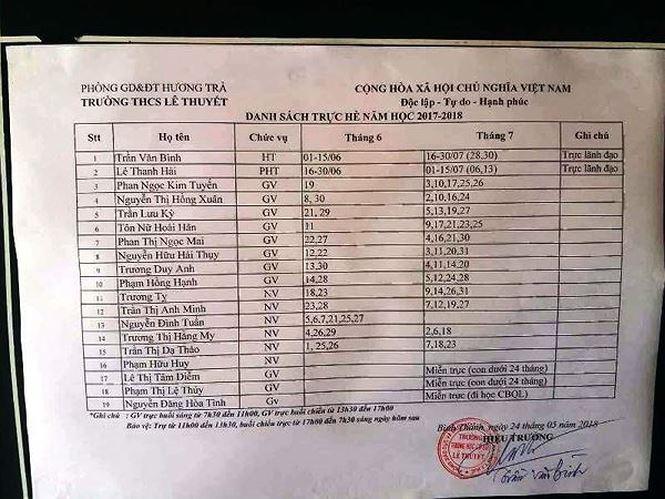 PHÒNG GD&ĐT HƯƠNG TRÀ CỘNG HÒA XÃ HỘI CHỦ NGHĨA VIỆT NAM
TRƯỜNG THCS LÊ THUYẾT Độc lập - Tự do - Hạnh phúc
DANH SÁCH TRỰC HÈ NĂM HỌC 2017-2018
Stt Họ tên Chức vụ Tháng 6 Tháng 7 Ghi chú
1 Trần Văn Bình HT 01-15/06 16-30/07 (28,30) Trực lãnh đạo
2 Lê Thanh Hải PHT 16-30/06 01-15/07 (06,13) Trực lãnh đạo
3 Phan Ngọc Kim Tuyến GV 19 3,10,17,25,26
4 Nguyễn Thị Hồng Xuân GV 8, 30 2,10,16,24
5 Trần Lưu Kỳ GV 21, 29 5,13,19,27
6 Tôn Nữ Hoài Hân GV 11 9,17,21,23,25
7 Phan Thị Ngọc Mai GV 22,27 4,16,21,30
8 Nguyễn Hữu Hải Thụy GV 12,22 3,11,20,31
9 Trương Duy Anh GV 13,30 4,11,14,20
10 Phạm Hồng Hạnh GV 14,28 5,12,24,28
11 Trương Tỵ NV 18,23 9,14,26,31
12 Trần Thị Anh Minh NV 23,28 7,12,19,27
13 Nguyễn Đình Tuấn NV 5,6,7,21,25,27
14 Trương Thị Hằng My NV 4,26,29 2,6,18
15 Trần Thị Dạ Thảo NV 1, 25,26 7,18,23
16 Phạm Hữu Huy NV
17 Lê Thị Tâm Diễm GV Miễn trực (con dưới 24 tháng)
18 Phạm Thị Lệ Thủy GV Miễn trực (con dưới 24 tháng)
19 Nguyễn Đăng Hòa Tĩnh Gv Miễn trực (đi học CBQL)
*Ghi chú : GV trực buổi sáng từ 7h30 đến 11h00, GV trực buổi chiều từ 13h30 đến 17h00
Bảo vệ: Trự từ 11h00 đến 13h30, buổi chiều trực từ 17h00 đến 7h30 sáng ngày hôm sau
Bình Thành, ngày 24 tháng 05 năm 2018
HIỆU TRƯỞNG
TRƯỜNG
TRUNG HỌC CƠ SỞ
LÊ THUYẾT
Trần Văn Bình